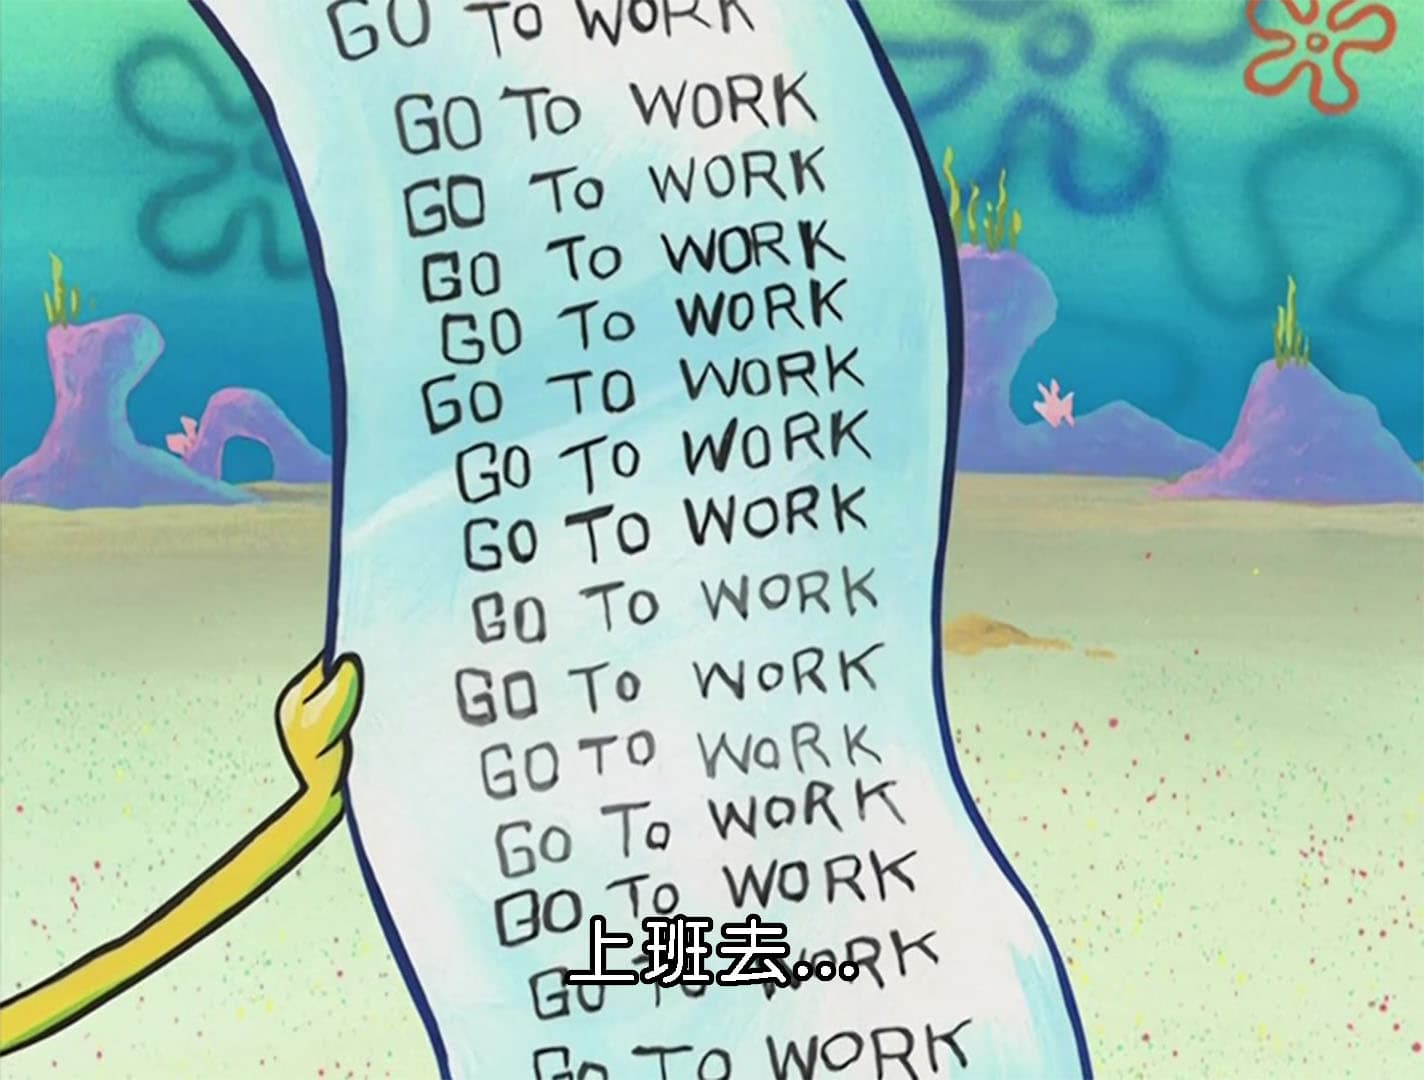 GO TO WORK
GO TO WORK
GO TO WORK
GO TO WORK
GO TO WORK
GO TO WORK
GO TO WORK
GO TO WORK
GO TO WORK
GO TO WORK
GO TO WORK
GO TO WORK
GO TO WORK
GO TO WORK
上班去...
GO TO WORK